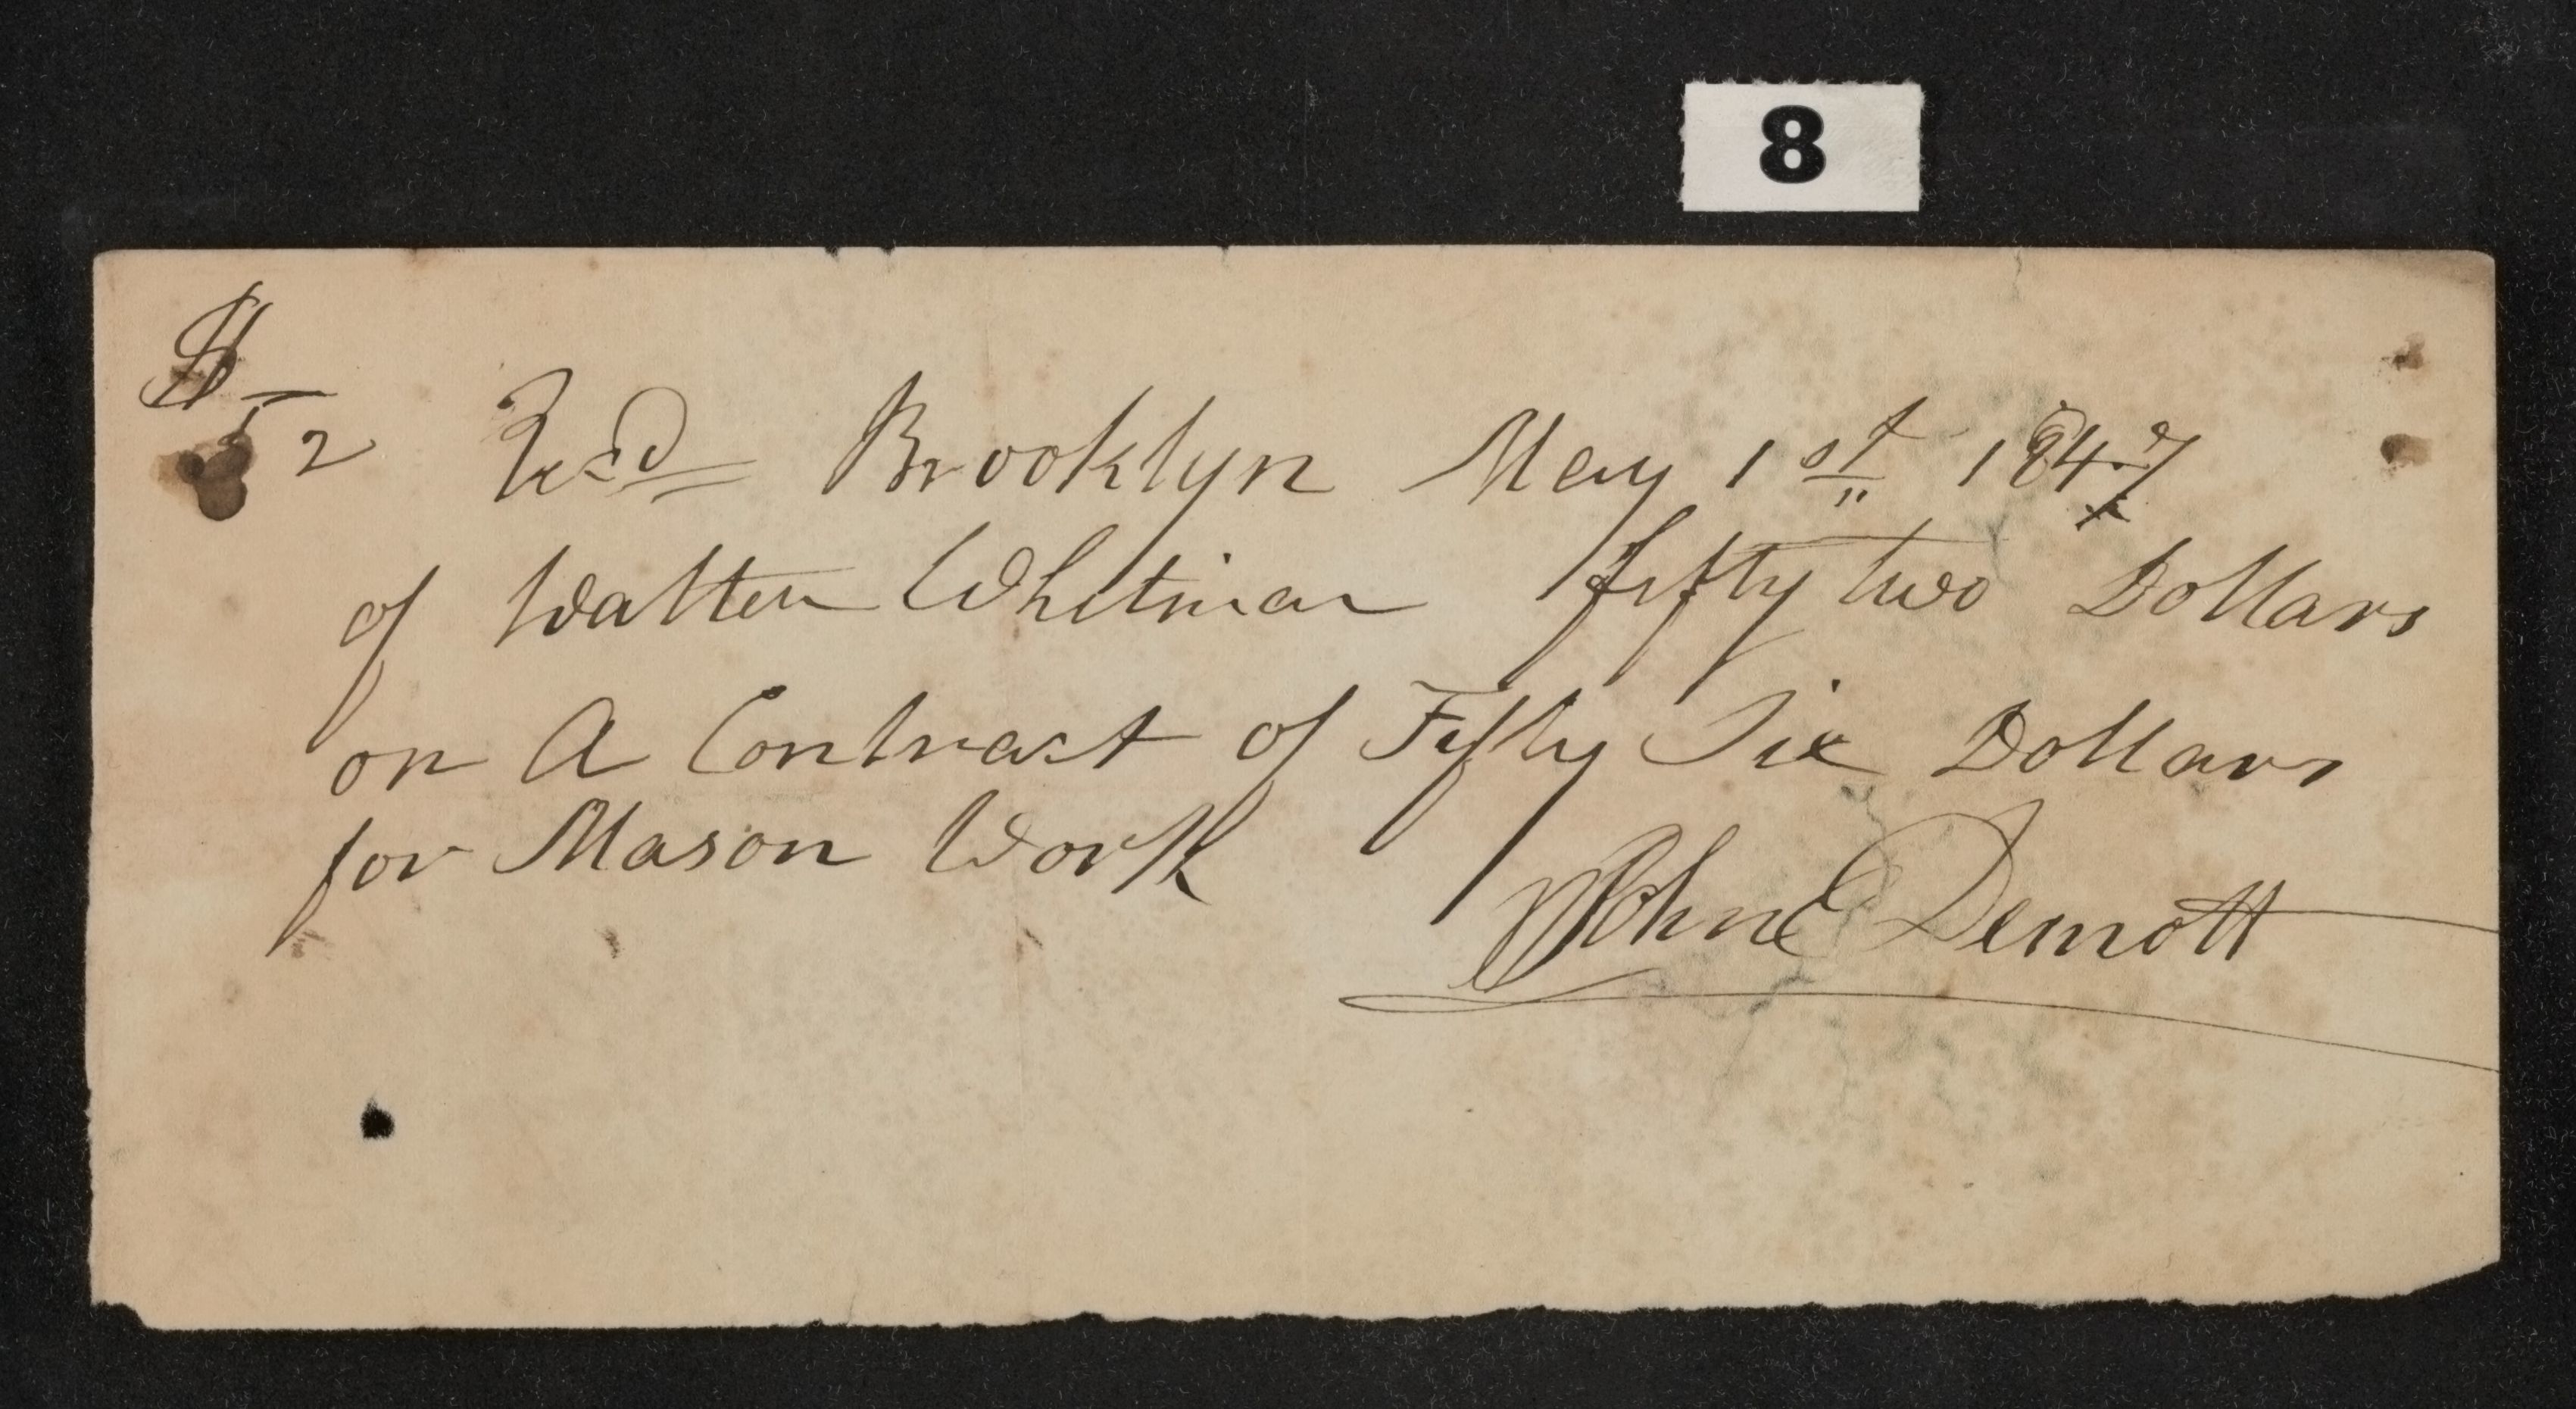 8
$52 Recd Brooklyn May 1st 1847
of Walter Whitman fifty two Dollars
on A Contract of Fifty Six Dollars
for Mason Work
John Demott